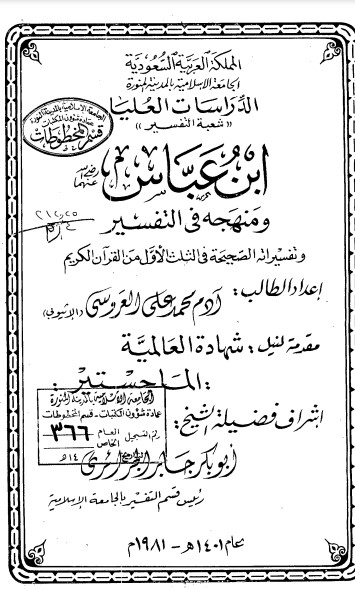 المملكة العربية السعودية
الجامعة الإسلامية بالمدينة المنورة
الدراسات العليا
« شعبة التفسير »
الجامعة الإسلامية بالمدينة المنورة
عمادة شؤون المكتبات
قسم المخطوطات
ابن عباس رضي الله عنهما
ومنهجه في التفسير
وتفسيراته الصحيحة في الثلث الأول من القرآن الكريم
إعداد الطالب: آدم محمد علي العروسي (الإثيوبي)
مقدمة لنيل: شهادة العالمية
"الماجستير"
الجامعة الإسلامية بالمدينة المنورة
عمادة شؤون المكتبات - قسم المخطوطات
رقم التسجيل العام ٣٦٦
الخاص
١٤ هـ
إشراف فضيلة الشيخ:
أبو بكر جابر الجزائري
رئيس قسم التفسير بالجامعة الإسلامية
عام ١٤٠١ هـ - ١٩٨١ م